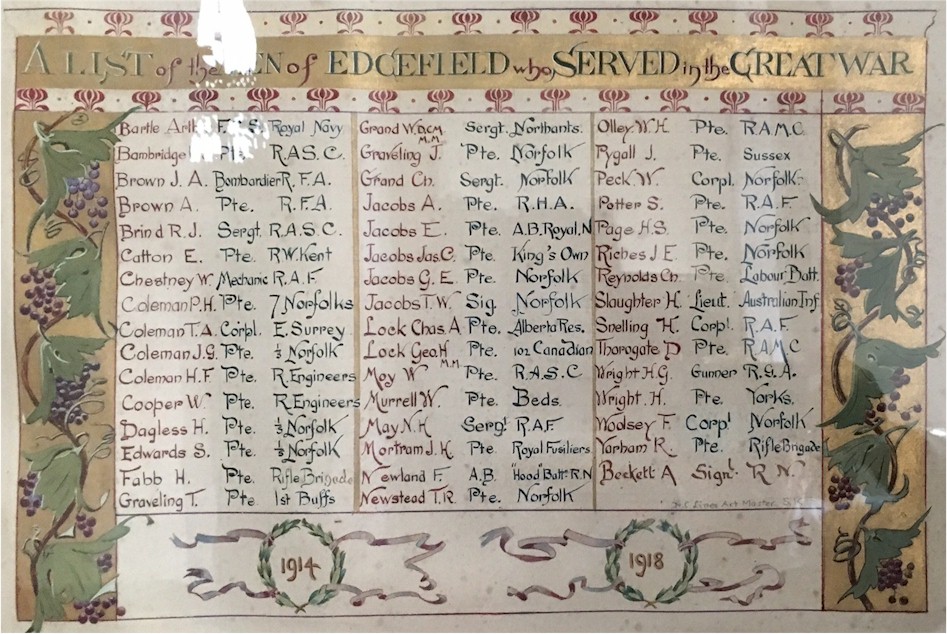 A LIST of the MEN of EDGEFIELD who SERVED in the GREAT WAR
Bartle Arth Royal Navy
Bambridge Pte. R.A.S.C.
Brown J. A. Bombardier R.F.A.
Brown A. Pte. R.F.A.
Brind R.J. Sergt. R.A.S.C.
Catton E. Pte. R.W.Kent
Chestney W. Mechanic R.A.F.
Coleman P.H. Pte. 7 Norfolks
Coleman T.A. Corpl. E. Surrey
Coleman J.G. Pte. Norfolk
Coleman H.F. Pte. R.Engineers
Cooper W. Pte. R.Engineers
Dagless H. Pte. Norfolk
Edwards S. Pte. Norfolk
Fabb H. Pte. Rifle Brigade
Graveling T. Pte. 1st Buffs
Grand W. D.C.M. M.M. Sergt. Northants.
Graveling J. Pte. Norfolk
Grand Ch. Sergt. Norfolk
Jacobs A. Pte. R.H.A.
Jacobs E. Pte. A.B. Royal.N
Jacobs Jas. C. Pte. King's Own
Jacobs G. E. Pte. Norfolk
Jacobs T.W. Sig. Norfolk
Lock Chas. A Pte. Alberta Res.
Lock Geo. H M.M. Pte. 102 Canadian
Moy W. Pte. R.A.S.C
Murrell W. Pte. Beds.
May N.H Sergt R.A.F.
Mortram J.H. Pte. Royal Fusiliers
Newland F. A.B. "Hood" Batt. R.N
Newstead T.R. Pte. Norfolk
Olley W.H. Pte. R.A.M.C.
Pygall J. Pte. Sussex
Peck W. Corpl. Norfolk
Potter S. Pte. R.A.F.
Page H.S. Pte. Norfolk
Riches J.E. Pte. Norfolk
Reynolds Ch. Pte. Labour.Batt.
Slaughter H. Lieut. Australian Inf.
Snelling H. Corpl. R.A.F.
Thorogate D Pte. R.A.M.C
Wright H.G. Gunner R.G.A.
Wright. H. Pte. Yorks.
Wodsey F. Corpl Norfolk
Yarham R. Pte. Rifle Brigade
Beckett A Signl. "R.N."
Art Master
1914 1918